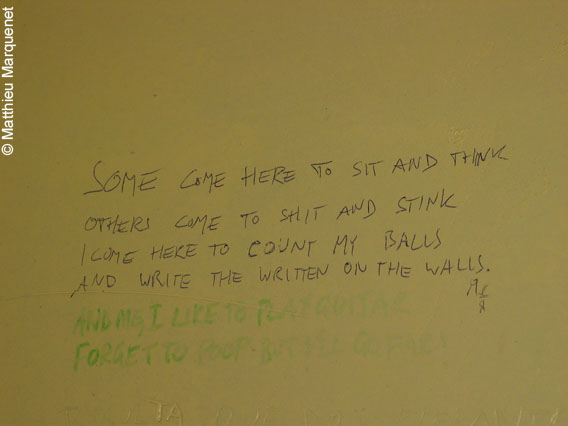 © Matthieu Marquenet
SOME COME HERE TO SIT AND THINK
OTHERS COME TO SHIT AND STINK
I COME HERE TO COUNT MY BALLS
AND WRITE THE WRITTEN ON THE WALLS.
AND ME, I LIKE TO PLAY GUITAR
FORGET TO POOP BUT I'LL GO FAR!